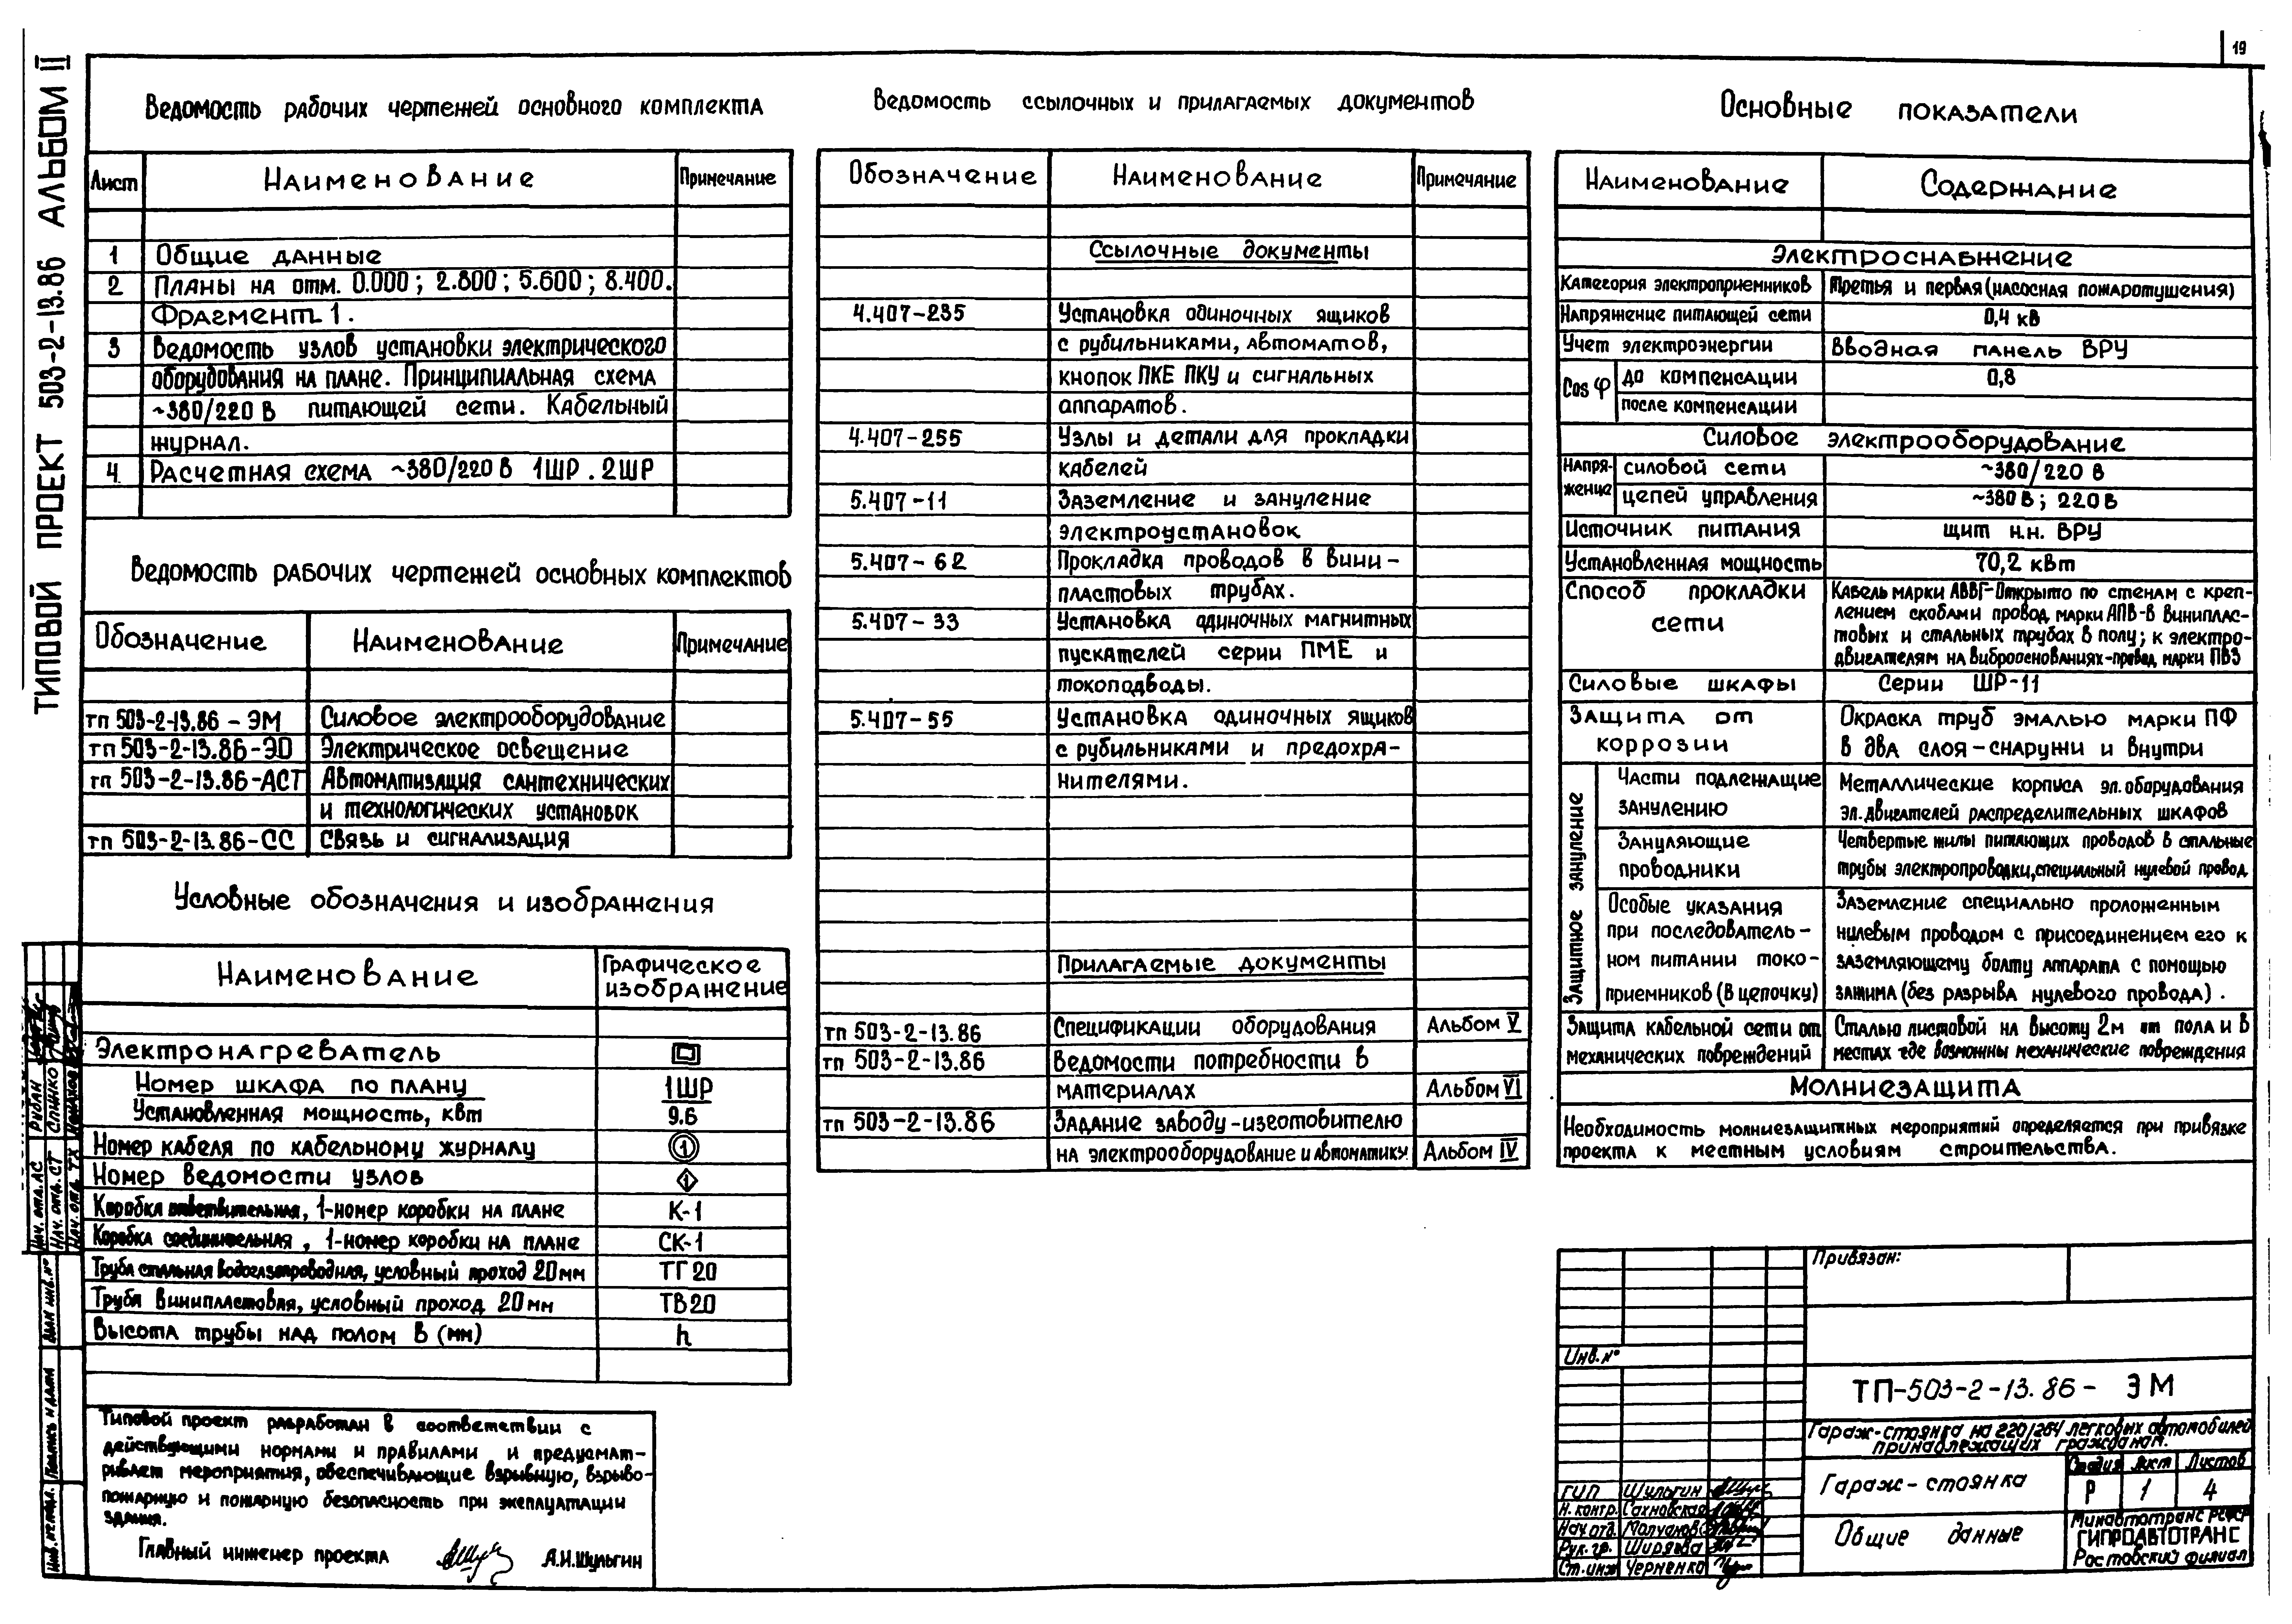 19
ТИПОВОЙ ПРОЕКТ 503-2-13.86 АЛЬБОМ II
Ведомость рабочих чертежей основного комплекта
Лист Наименование Примечание
1 Общие данные
2 Планы на отм. 0.000; 2.800; 5.600; 8.400.
Фрагмент 1.
3 Ведомость узлов установки электрического
оборудования на плане. Принципиальная схема
~380/220 В питающей сети. Кабельный
журнал.
4 Расчетная схема ~380/220 В 1ШР. 2ШР
Ведомость рабочих чертежей основных комплектов
Обозначение Наименование Примечание
тп 503-2-13.86 - ЭМ Силовое электрооборудование
тп 503-2-13.86-ЭО Электрическое освещение
тп 503-2-13.86-АСТ Автоматизация сантехнических
и технологических установок
тп 503-2-13.86-СС Связь и сигнализация
Условные обозначения и изображения
Наименование Графическое
изображение
Электронагреватель
Номер шкафа по плану 1ШР
Установленная мощность, квт 9.6
Номер кабеля по кабельному журналу 1
Номер ведомости узлов 1
Коробка ответвительная, 1-номер коробки на плане К-1
Коробка соединительная, 1-номер коробки на плане СК-1
Труба стальная водогазопроводная, условный проход 20мм ТГ20
Труба винипластовая, условный проход 20мм ТВ20
Высота трубы над полом в (мм) h
Типовой проект разработан в соответствии с
действующими нормами и правилами и предусмат-
ривает мероприятия, обеспечивающие взрывную, взрыво-
пожарную и пожарную безопасность при эксплуатации
здания.
Главный инженер проекта А.И.Шульгин
Ведомость ссылочных и прилагаемых документов
Обозначение Наименование Примечание
Ссылочные документы
4.407-235 Установка одиночных ящиков
с рубильниками, автоматов,
кнопок ПКЕ ПКУ и сигнальных
аппаратов.
4.407-255 Узлы и детали для прокладки
кабелей
5.407-11 Заземление и зануление
электроустановок
5.407-62 Прокладка проводов в вини-
пластовых трубах.
5.407-33 Установка одиночных магнитных
пускателей серии ПМЕ и
токоподводы.
5.407-55 Установка одиночных ящиков
с рубильниками и предохра-
нителями.
Прилагаемые документы
тп 503-2-13.86 Спецификации оборудования Альбом V
тп 503-2-13.86 Ведомости потребности в
материалах Альбом VI
тп 503-2-13.86 Задание заводу-изготовителю
на электрооборудование и автоматику. Альбом IV
Основные показатели
Наименование Содержание
Электроснабжение
Категория электроприемников Третья и первая (насосная пожаротушения)
Напряжение питающей сети 0,4 кв
Учет электроэнергии Вводная панель ВРУ
Cos φ до компенсации 0,8
после компенсации
Силовое электрооборудование
Напря-
жение силовой сети ~380/220 В
цепей управления ~380В; 220В
Источник питания щит н.н. ВРУ
Установленная мощность 70,2 квт
Способ прокладки
сети
Кабель марки АВВГ-Открыто по стенам с креп-
лением скобами провод марки АПВ-в винипласт-
овых и стальных трубах в полу; к электро-
двигателям на виброоснованиях-провод марки ПВ3
Силовые шкафы Серии ШР-11
Защита от
коррозии
Окраска труб эмалью марки ПФ
в два слоя-снаружи и внутри
Защитное зануление
Части подлежащие
занулению
Металлические корпуса эл.оборудования
эл.двигателей распределительных шкафов
Зануляющие
проводники
Четвертые жилы питающих проводов в стальные
трубы электропроводки, специальный нулевой провод
Особые указания
при последователь-
ном питании токо-
приемников (в цепочку)
Заземление специально проложенным
нулевым проводом с присоединением его к
заземляющему болту аппарата с помощью
зажима (без разрыва нулевого провода).
Защита кабельной сети от
механических повреждений
Сталью листовой на высоту 2м от пола и в
местах где возможны механические повреждения
Молниезащита
Необходимость молниезащитных мероприятий определяется при привязке
проекта к местным условиям строительства.
Привязан:
Инв. №
ТП-503-2-13.86- ЭМ
Гараж-стоянка на 220/264 легковых автомобилей
принадлежащих гражданам.
Гараж-стоянка
Стадия Лист Листов
Р 1 4
Общие данные
Минавтотранс РСФСР
ГИПРОАВТОТРАНС
Ростовский филиал
ГИП Шульгин
Н. контр. Сахновская
Нач. отд.
Рук. гр. Ширяева
Ст. инж Черненко
Нач. отд. АС Рубан
Нач. отд. СТ Спинко
Нач. отд. ТХ
Взам. инв. №
Подпись и дата
Инв. № подл.